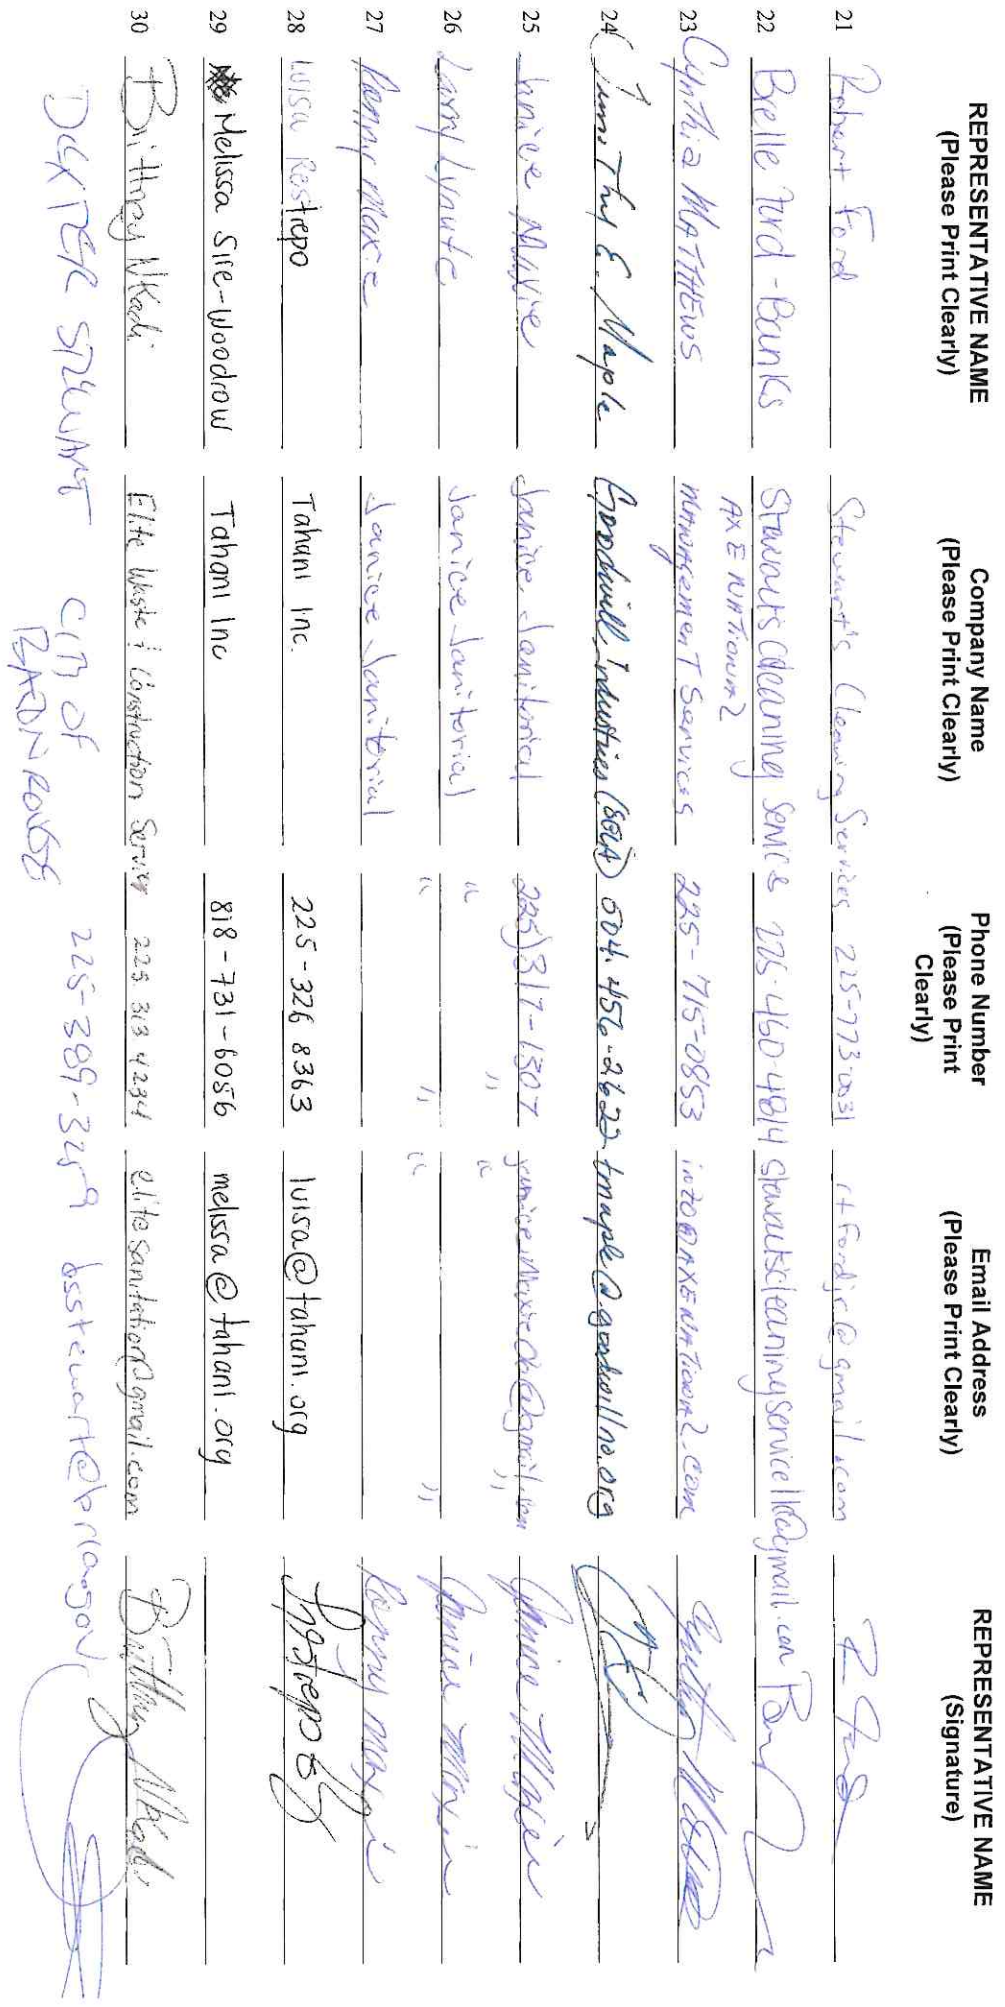 REPRESENTATIVE NAME (Please Print Clearly) Company Name (Please Print Clearly) Phone Number (Please Print Clearly) Email Address (Please Print Clearly) REPRESENTATIVE NAME (Signature)
21 Robert Ford Stewart's Cleaning Services 225-773-0031 rtfordjr@gmail.com
22 Brelle Ford-Banks Stewarts Cleaning Service 225-460-4814 stewartscleaningservicellc@gmail.com
23 Cynthia MATTHEWS AXE NATIONAL MANAGEMENT Services 225-715-0853 info@AXENATIONAL.com
24 Timothy E. Maple Goodwill Industries (SELA) 504.456-2622 tmaple@goodwillno.org
25 Janice Maxie Janice Janitorial 225)317-1307 Janice Maxie
26 Larry Janice Janitorial " " " " Janice Maxie
27 Ronny Maxie Janice Janitorial " " " " Ronny Maxie
28 Luisa Restrepo Tahani Inc. 225-326 8363 luisa@tahani.org
29 Melissa Sire-Woodrow Tahani Inc 818-731-6056 melissa@tahani.org
30 Brittney NKadi Elite Waste & Construction Services 225 313 4234 elitesanitation@gmail.com Brittney Nkadi
DEXTER STEWART CITY OF BATON ROUGE 225-389-3259 dsstewart@brla.gov